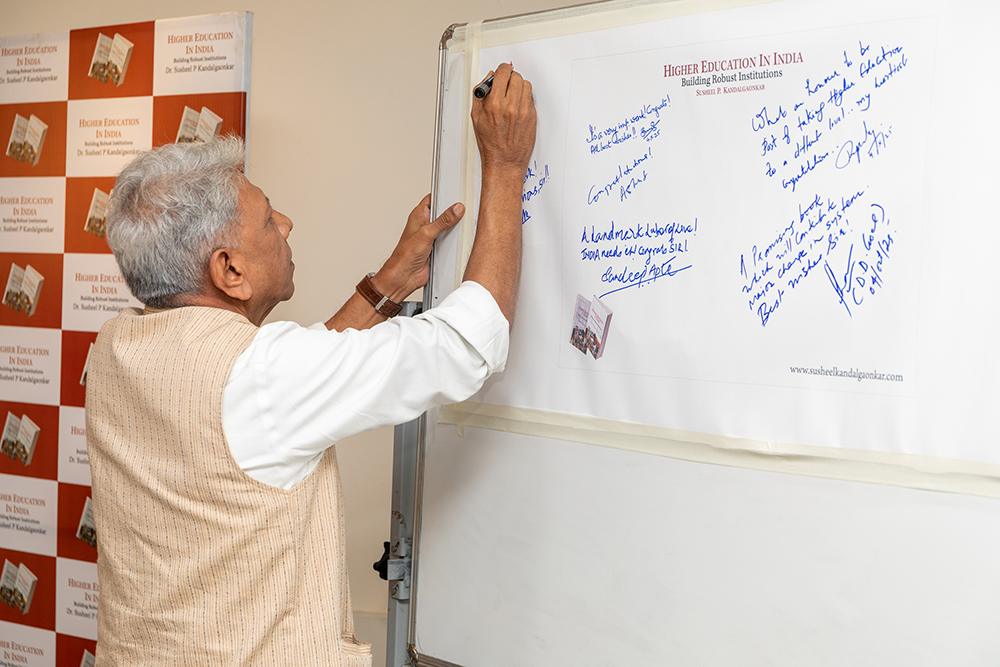 HIGHER EDUCATION
IN INDIA
Building Robust Institutions
Dr. Susheel P Kandalgaonkar
HIGHER EDUCATION
IN INDIA
Building Robust Institutions
Dr. Susheel P Kandalgaonkar
HIGHER EDUCATION
IN INDIA
Building Robust Institutions
Dr. Susheel P Kandalgaonkar
HIGHER EDUCATION
IN INDIA
Building Robust Institutions
Dr. Susheel P Kandalgaonkar
HIGHER
IN
Building
Dr. Susheel
HIGHER EDUCATION
IN INDIA
Building Robust Institutions
Dr. Susheel P Kandalgaonkar
HIGHER
Dr. Susheel
HIGHER EDUCATION
IN INDIA
Building Robust Institutions
Dr. Susheel P Kandalgaonkar
HIGHER
IN
Building
Dr. Susheel P
HIGHER EDUCATION
IN INDIA
Building Robust Institutions
Dr. Susheel P Kandalgaonkar
HIGHER EDUCATION IN INDIA
Building Robust Institutions
SUSHEEL P. KANDALGAONKAR
It's a very imp work! Congrats!
All best wishes!!
Congratulations!
A Landmark Labor of Love!
INDIA needs it Congrats SIR!
Sandeep Apte
What an honour to be
part of taking Higher Education
to a different level.. my heartiest
congratulations..
A Promising book
which will contribute
major change in system
Best wishes, Sir.
(D.D. Goel)
www.susheelkandalgaonkar.com